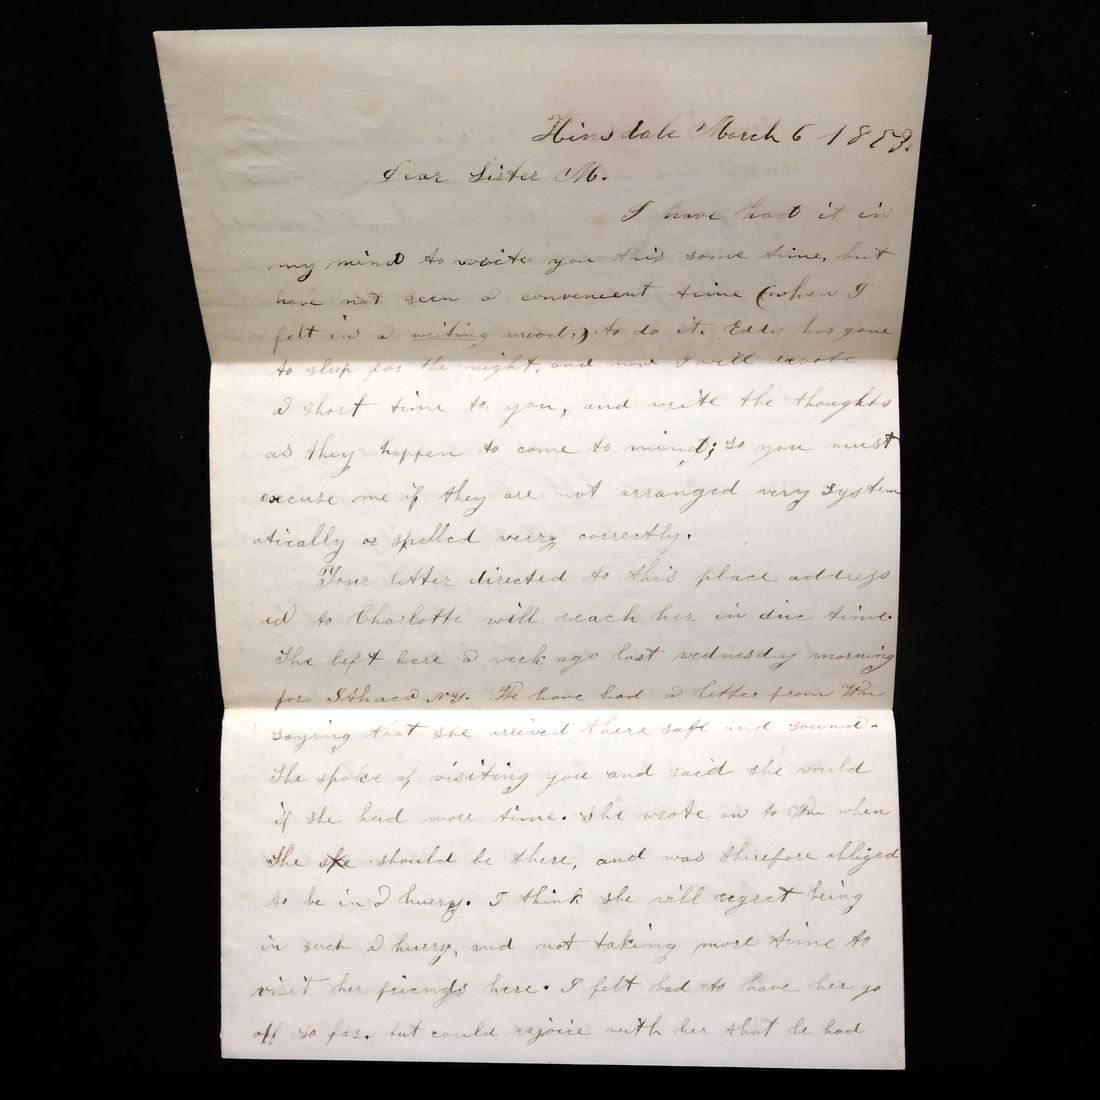 Hinsdale March 6 1853.
Dear Sister M.
I have had it in
my mind to write you this some time, but
have not seen a convenient time (when I
felt in a writing mood,) to do it. Eddy has gone
to sleep for the night, and now I will devote
a short time to you, and write the thoughts
as they happen to come to mind; so you must
excuse me if they are not arranged very system
atically or spelled verry correctly.
Your letter directed to this place address
ed to Charlotte will reach her in due time.
She left here a week ago last wednesday morning
for Ithaca NY. We have had a letter from Wm
saying that she arrived there safe and sound.
She spoke of visiting you and said she would
if she had more time. She wrote on to Wm when
She she should be there, and was therefore obliged
to be in a hurry. I think she will regret being
in such a hurry, and not taking more time to
visit her friends here. I felt bad to have her go
off so far. but could rejoice with her that he had